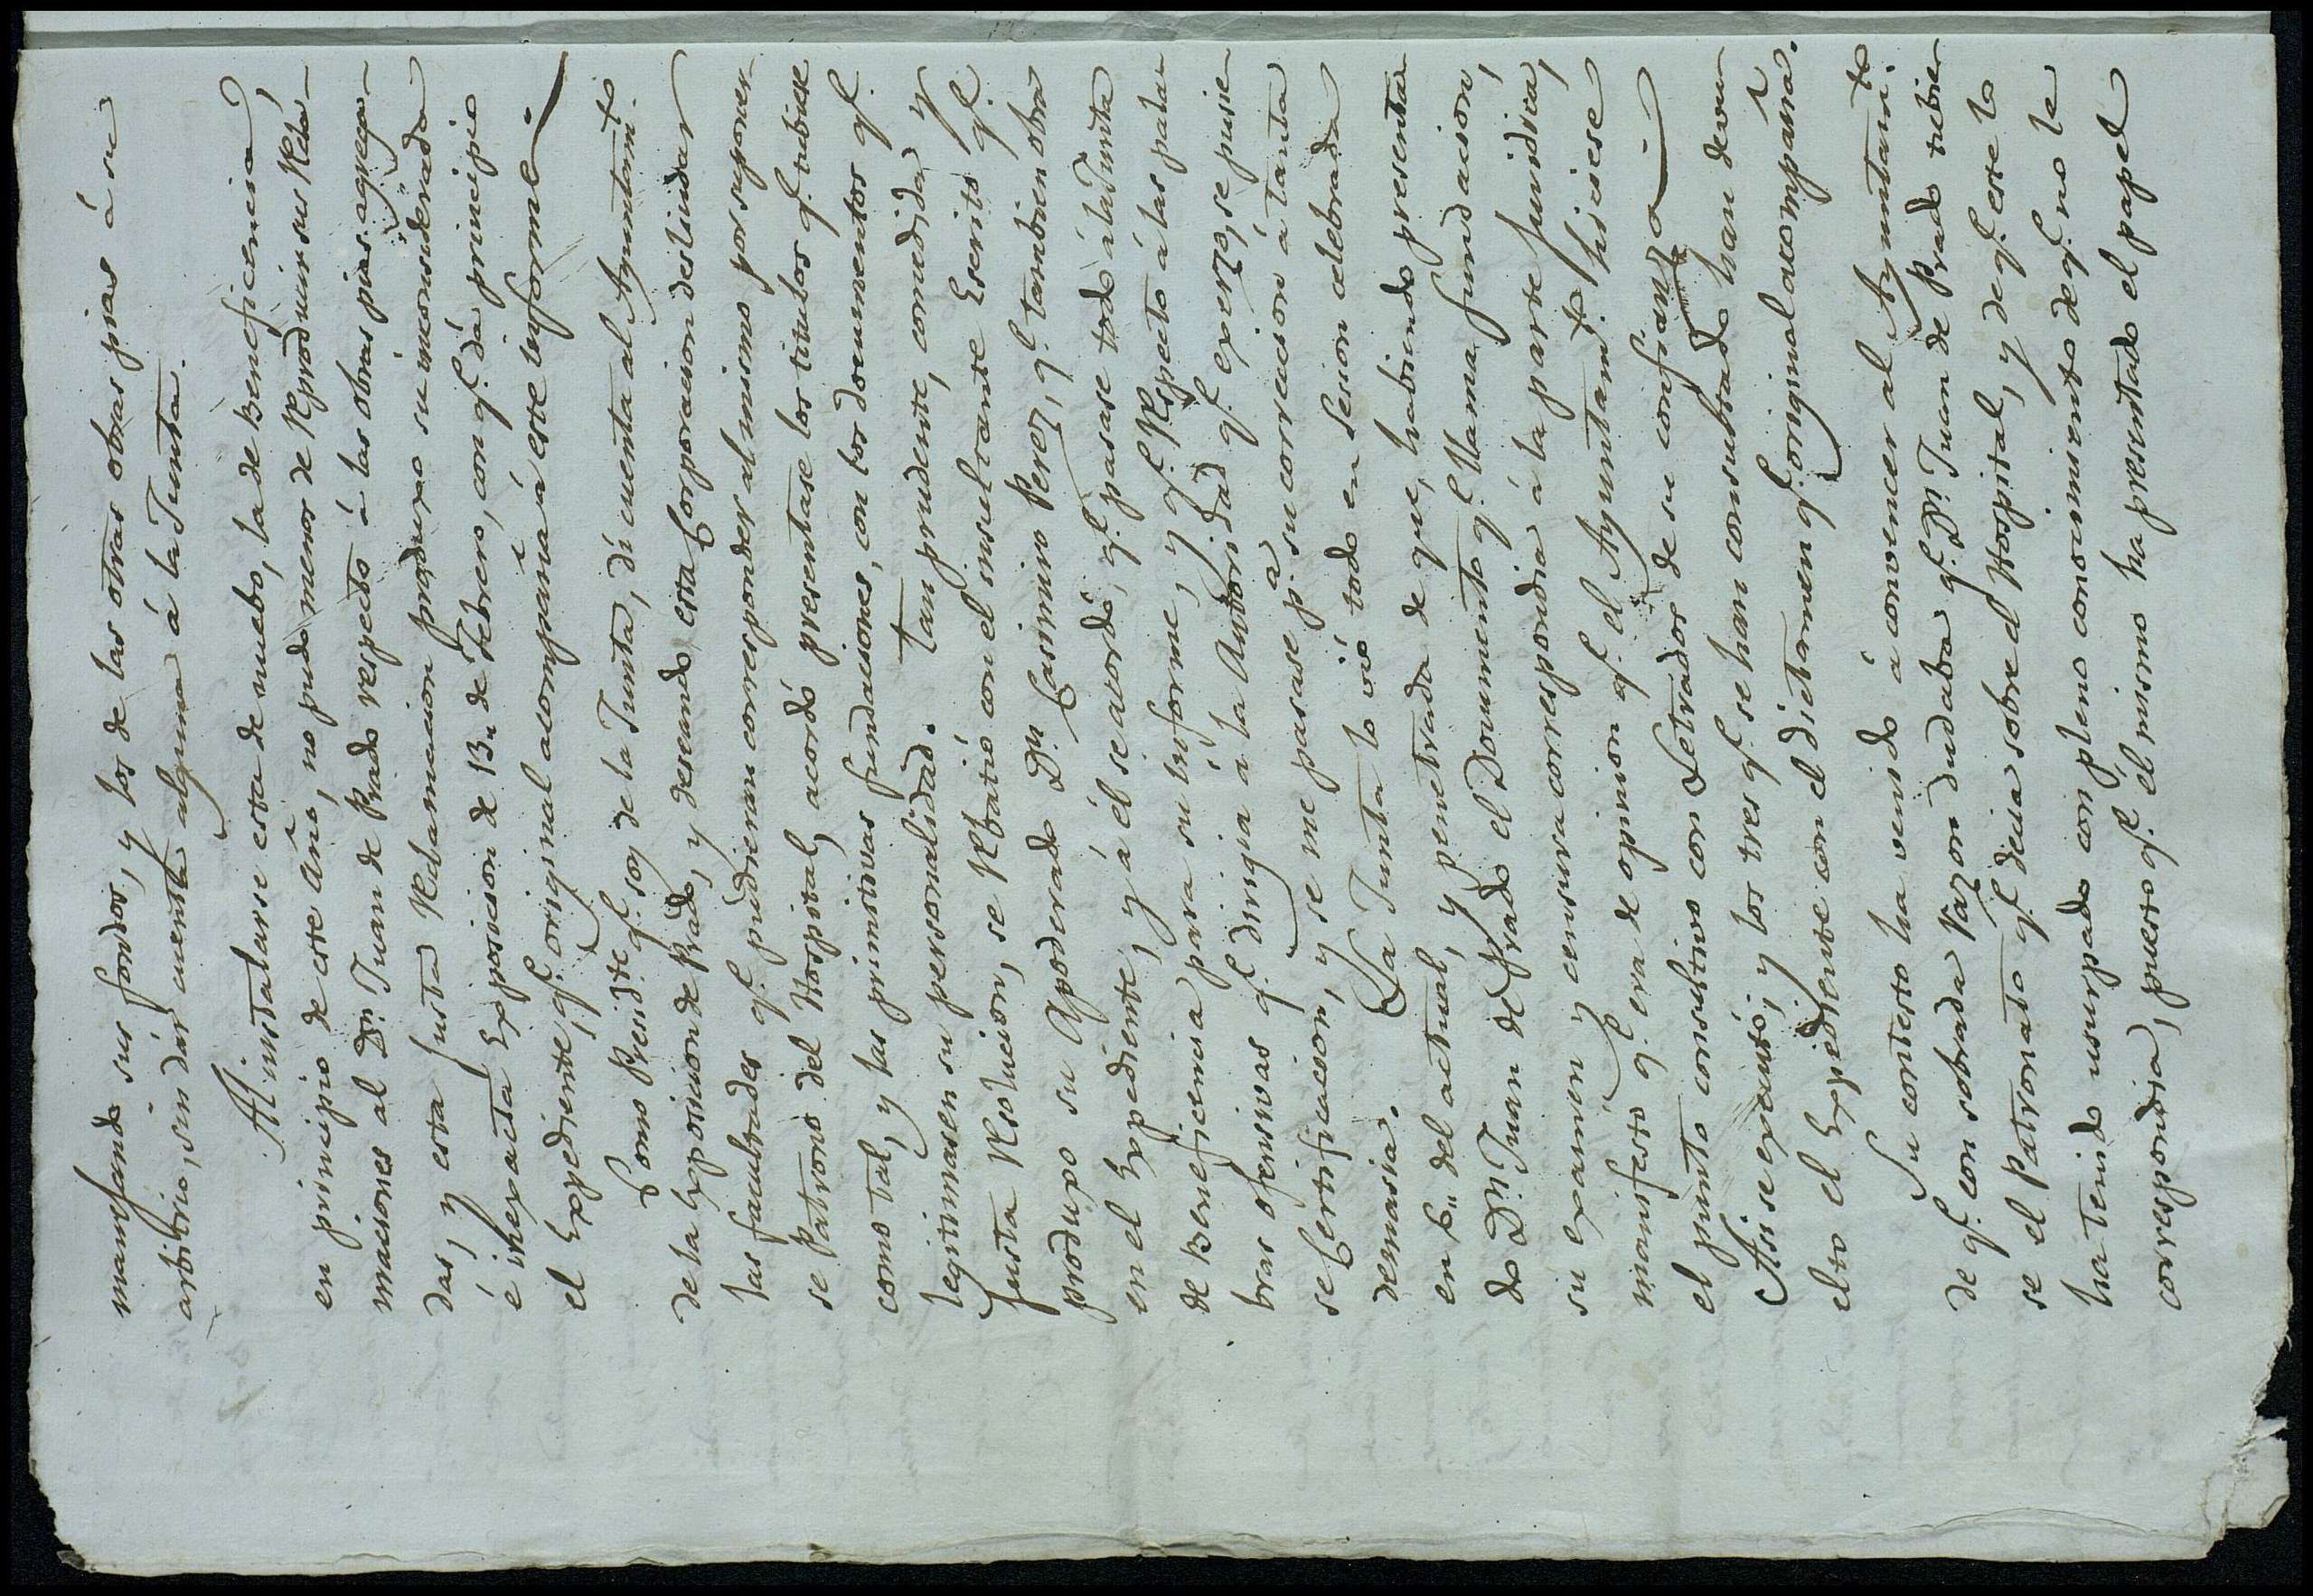 manejando sus fondos, y los de las otras obras pias á su
arbitrio, sin dár cuenta alguna á la Junta.
Al instalarse esta de nuebo, la de Beneficencia,
en principio de este Año, no pudo menos de Rproducir sus Rcla-
maciones al Dn. Juan de Prado respecto á las obras pias agrega-
das, y esta justa Rclamacion produxo su inconsiderada
é inexacta Exposicion de 13,, de Febrero, con qe. dá principio
el Expediente, qe. original acompaña á este informe.
Como Presidte. qe. soy de la Junta, dí cuenta al Ayuntamto.
de la Exposicion de Prado, y deseando esta Corporacion deslindar
las facultades qe. pudieran corresponder al mismo por suponer-
se Patrono del Hospital, acordó presentase los titulos qe. tubiese
como tal, y las primitivas fundaciones, con los documentos qe.
legitimasen su personalidad. Tan prudente, comedida y
justa Rsolucion, se Rbatió con el insultante Escrito qe.
produxo su Apoderado Dn. Casimiro Perez, qe. tambien obra
en el Expediente, y á él se acordó, qe. pasase todo á la Junta
de Beneficencia para su informe, y qe. Rspecto á las pala-
bras ofensivas qe. dirigia á la Autoridad qe. exerzo, se pusie-
se Certificacion, y se me pasase pa. su correccion á tanta
demasia. La Junta lo vió todo en Sesion celebrada
en 6,, del actual, y penetrada de que, habiendo presenta-
do Dn. Juan de Prado el Documento qe. llama fundacion,
su examen y censura correspondia á la parte juridica,
manifestó qe. era de opinion qe. el Ayuntamto. hiciese
el punto consultivo con Letrados de su confianza.
Asi se executó, y los tres qe. se han consultado han devu-
elto el Expediente con el dictamen qe. original acompaña.
Su contesto ha venido á convencer al Ayuntamto.
de qe. con sobrada razon dudaba qe. Dn. Juan de Prado tubie-
se el Patronato qe. decia sobre el Hospital, y de qe. este lo
ha tenido usurpado con pleno conocimiento de qe. no le
correspondia, puesto qe. él mismo ha presentado el papel